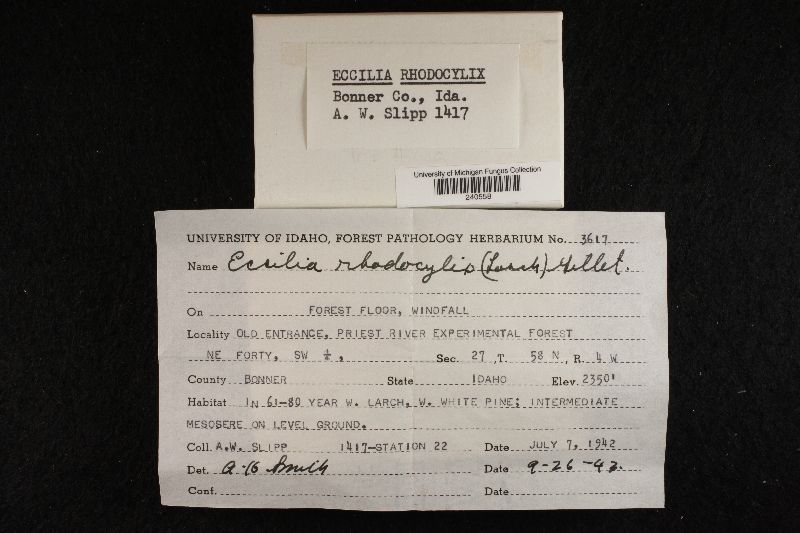 ECCILIA RHODOCYLIX
Bonner Co., Ida.
A. W. Slipp 1417
University of Michigan Fungus Collection
240559
UNIVERSITY OF IDAHO, FOREST PATHOLOGY HERBARIUM No. 3617
Name Eccilia rhodocylix (Lasch) Gillet.
On FOREST FLOOR, WINDFALL
Locality OLD ENTRANCE, PRIEST RIVER EXPERIMENTAL FOREST
NE FORTY, SW ¼, Sec. 27, T. 58 N, R. 4 W
County BONNER State IDAHO Elev. 2350'
Habitat IN 61-80 YEAR W. LARCH, W. WHITE PINE; INTERMEDIATE
MESOSERE ON LEVEL GROUND.
Coll. A.W. SLIPP 1417-STATION 22 Date JULY 7, 1942
Det. A H Smith Date 9-26-42.
Conf. Date